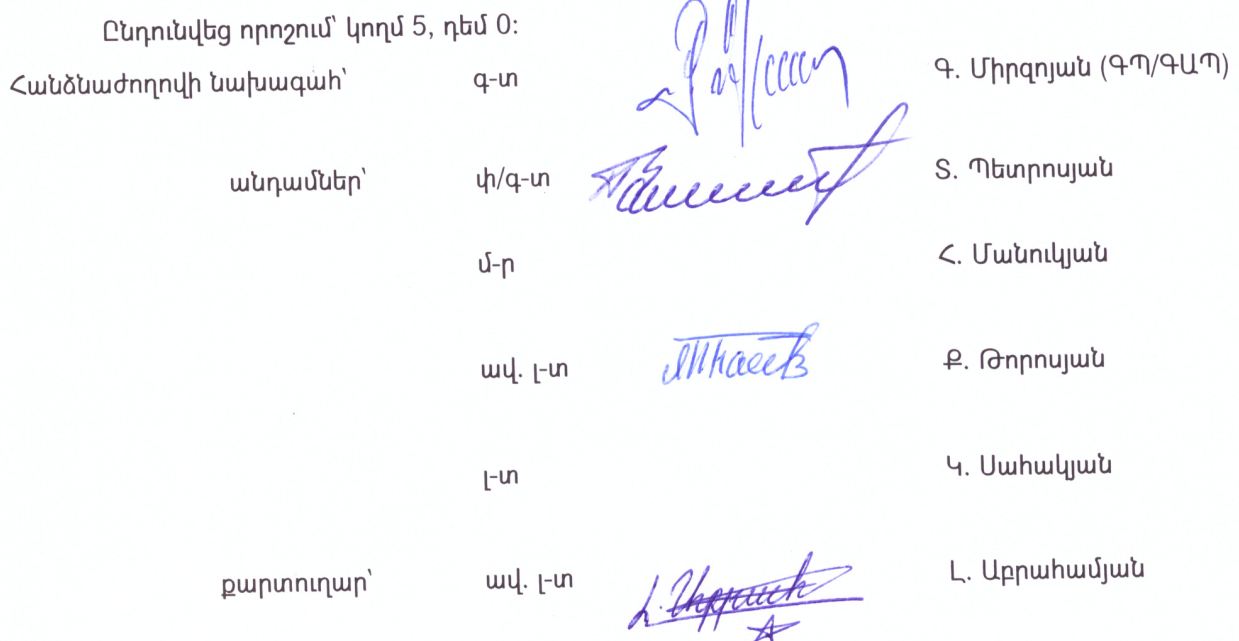 Ընդունվեց որոշում՝ կողմ 5, դեմ 0:
Հանձնաժողովի նախագահ՝ գ-տ Գ. Միրզոյան (ԳՊ/ԳԱՊ)
անդամներ՝ փ/գ-տ Տ. Պետրոսյան
մ-ր Հ. Մանուկյան
ավ. լ-տ Ք. Թորոսյան
լ-տ Կ. Սահակյան
քարտուղար՝ ավ. լ-տ Լ. Աբրահամյան